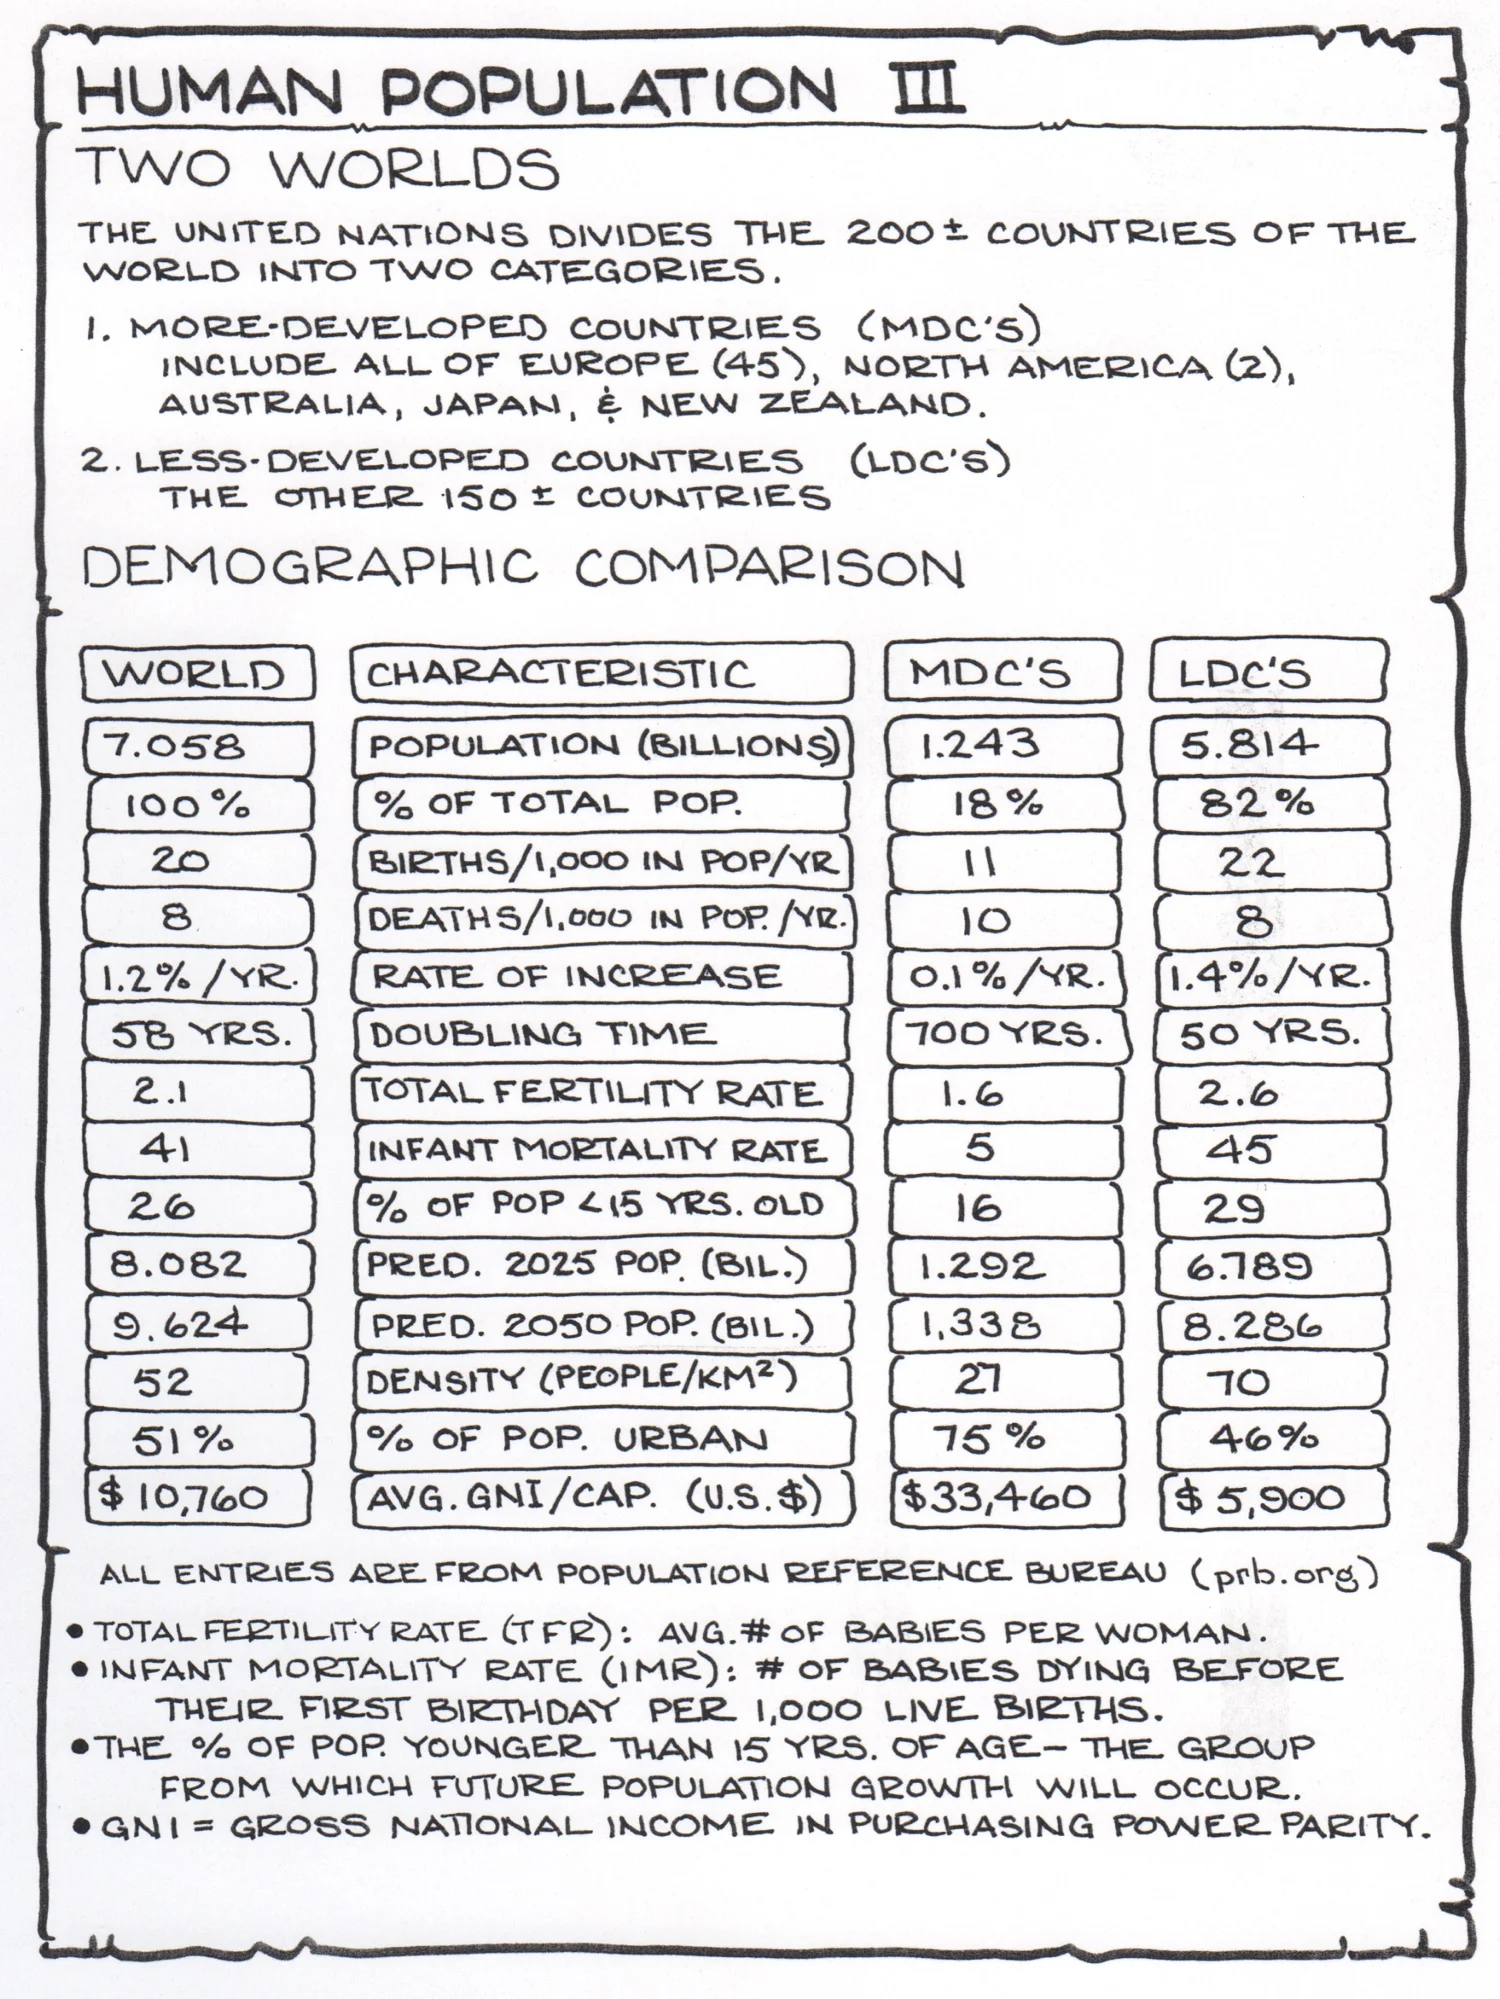 HUMAN POPULATION III
TWO WORLDS
THE UNITED NATIONS DIVIDES THE 200± COUNTRIES OF THE
WORLD INTO TWO CATEGORIES.
1. MORE-DEVELOPED COUNTRIES (MDC'S)
INCLUDE ALL OF EUROPE (45), NORTH AMERICA (2),
AUSTRALIA, JAPAN, & NEW ZEALAND.
2. LESS-DEVELOPED COUNTRIES (LDC'S)
THE OTHER 150 ± COUNTRIES
DEMOGRAPHIC COMPARISON
WORLD CHARACTERISTIC MDC'S LDC'S
7.058 POPULATION (BILLIONS) 1.243 5.814
100% % OF TOTAL POP. 18% 82%
20 BIRTHS/1,000 IN POP/YR 11 22
8 DEATHS/1,000 IN POP./YR. 10 8
1.2%/YR. RATE OF INCREASE 0.1%/YR. 1.4%/YR.
58 YRS. DOUBLING TIME 700 YRS. 50 YRS.
2.1 TOTAL FERTILITY RATE 1.6 2.6
41 INFANT MORTALITY RATE 5 45
26 % OF POP <15 YRS. OLD 16 29
8.082 PRED. 2025 POP. (BIL.) 1.292 6.789
9.624 PRED. 2050 POP. (BIL.) 1,338 8.286
52 DENSITY (PEOPLE/KM²) 27 70
51% % OF POP. URBAN 75% 46%
$10,760 AVG. GNI/CAP. (U.S.$) $33,460 $5,900
ALL ENTRIES ARE FROM POPULATION REFERENCE BUREAU (prb.org)
• TOTAL FERTILITY RATE (TFR): AVG.# OF BABIES PER WOMAN.
• INFANT MORTALITY RATE (IMR): # OF BABIES DYING BEFORE
THEIR FIRST BIRTHDAY PER 1,000 LIVE BIRTHS.
• THE % OF POP. YOUNGER THAN 15 YRS. OF AGE– THE GROUP
FROM WHICH FUTURE POPULATION GROWTH WILL OCCUR.
• GNI = GROSS NATIONAL INCOME IN PURCHASING POWER PARITY.